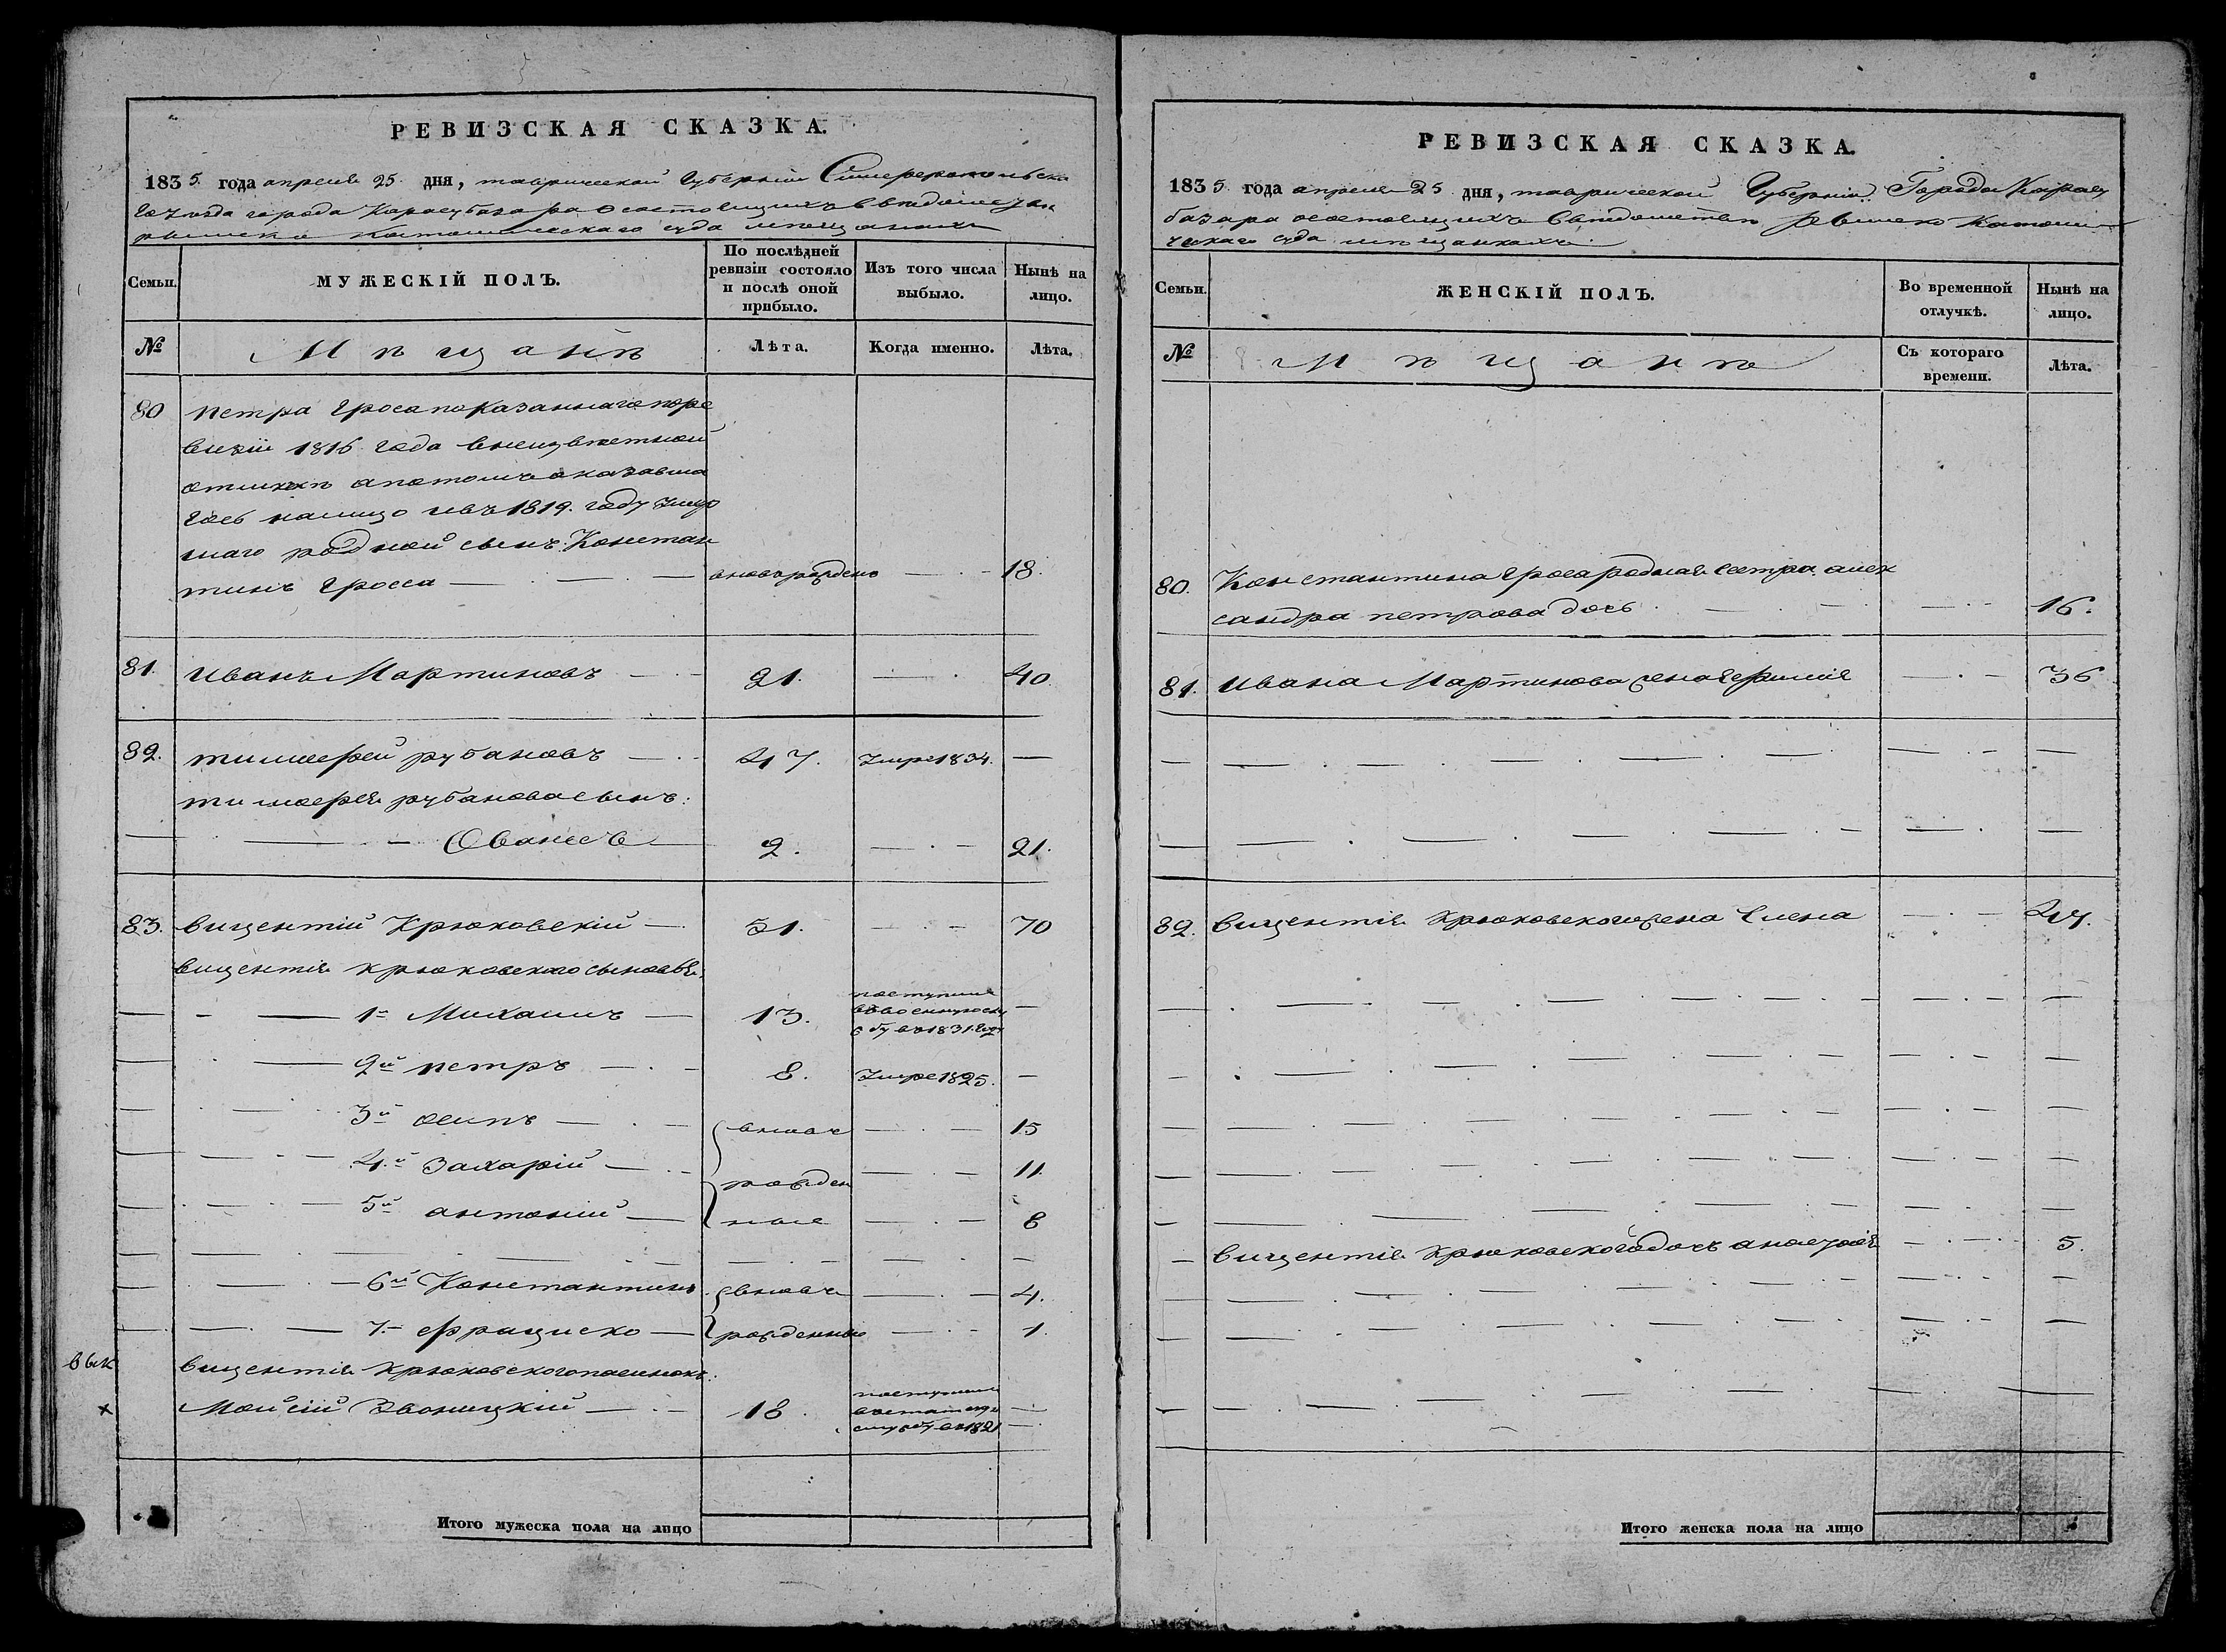 РЕВИЗСКАЯ СКАЗКА.
1835 года апреля 25 дня, таврической Губерніи Симферопольска
го уезда города Карасубазара осостоящихъ ввѣдомствѣ
римско католическаго суда мѣщанахъ
Семьи.
МУЖЕСКІЙ ПОЛЪ.
По послѣдней ревизіи состояло и послѣ оной прибыло.
Изъ того числа выбыло.
Нынѣ на лицо.
№
Мѣщанѣ
Лѣта.
Когда именно.
Лѣта.
80 петра Гроса показаннаго поре
визіи 1816 года
апотомъ оказавша
гось налицо ивъ 1819. году умер
шаго родной сынъ Констан
тинъ Гросса вновьрожденъ 18.
81. Иванъ Мартиновъ 21. 40
82. тимофей рубановъ 47. Умре 1834. —
тимофея рубанова сынъ:
Ованесъ 2. 21.
83. вицентій Крюковскій 51. 70
вицентія крюковскаго сыновья.
1й Михаилъ 13. поступилъ ввоенную слу жбу въ 1831. году —
2й петръ 8. Умре 1825. —
3й осипъ вновь 15
4й Захарій рожден 11.
5й антоній ные 8
6й Константинъ вновь 4.
7й Франциско рожденные 1.
вык вицентія крюковскогопасинокъ:
× Мойсій Звоницкій 18 поступилъ службу въ 1821 —
Итого мужеска пола на лицо
РЕВИЗСКАЯ СКАЗКА.
1835 года апреля 25 дня, таврической Губерніи Города Карасу
базара осостоящихъ ввѣдомствѣ римско католи
ческаго суда мѣщанкахъ
Семьи.
ЖЕНСКІЙ ПОЛЪ.
Во временной отлучкѣ.
Нынѣ на лицо.
№
Мѣщанѣ
Съ котораго времени.
Лѣта.
80. Константина Гроса родная сестра алек
сандра петрова дочь 16.
81. Ивана Мартинова жена Ефимія 36
82. вицентія крюковскогожена Елена 47.
вицентія крюковскогодочь 5.
Итого женска пола на лицо